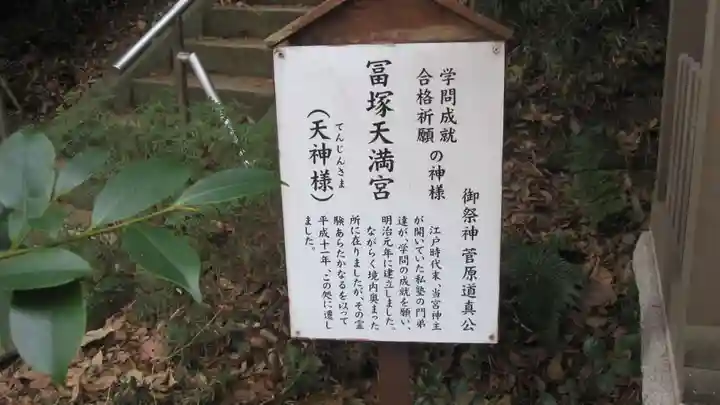 学問成就
合格祈願
の神様
冨塚天満宮
てんじんさま
(天神様)
御祭神 菅原道真公
江戸時代末、当宮神主
が開いていた私塾の門弟
達が、学問の成就を願い、
明治元年に建立しました。
ながらく境内奥まった
所に在りましたが、その霊
験あらたかなるを以って
平成十一年、この処に遷し
ました。